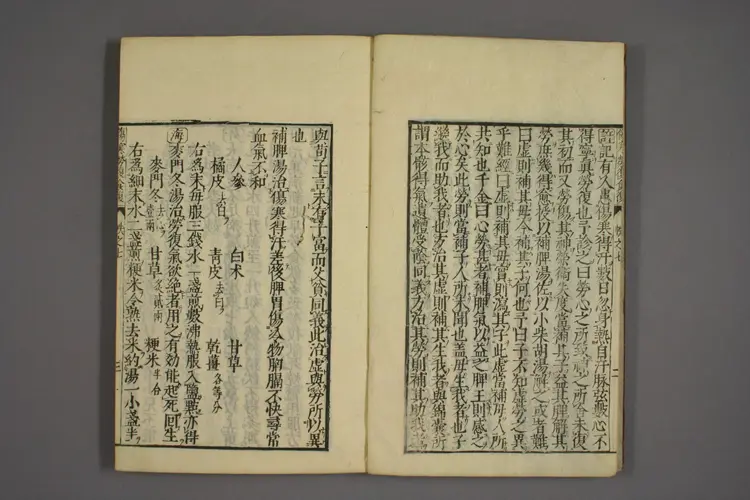 記有人患傷寒得汗數日忽身熱自汗脉弦數心不
得寧真勞復也予診之曰勞心之所致神之所舍未復
其初而又勞傷其神榮衛失度當補其子益其脾解其
勞庶幾得愈授以補脾湯佐以小柴胡湯解之或者難
曰虛則補其母今補其子何也予曰子不知虛勞之異
乎難經曰虛則補其母實則瀉其子此虛當補母人所
共知也千金曰心勞甚者補脾氣以益之脾王則感之
於心矣此勞則當補子人所未聞也蓋母生我者也子
繼我而助我者也方治其虛則補其生我者與錦囊所
謂本骸得氣遺體受蔭同義方治其勞則補其助我者
與荀子言未有子富而父貧同義此治虛與勞所以異
也
補脾湯治傷寒得汗差後脾胃傷冷物胸膈不快尋常
血氣不和
人參 白朮 甘草
橘皮去白 青皮去白 乾薑各等分
右爲末毎服三錢水一盞煎數沸熱服入鹽點亦得
海 麥門冬湯治勞復氣欲絶者用之有効能起死回生
麥門冬去心壹兩 甘草炙貳兩 粳米半合
右爲細末水二盞煎粳米令熟去米約湯一小盞半
卷之七 二
卷之七 三